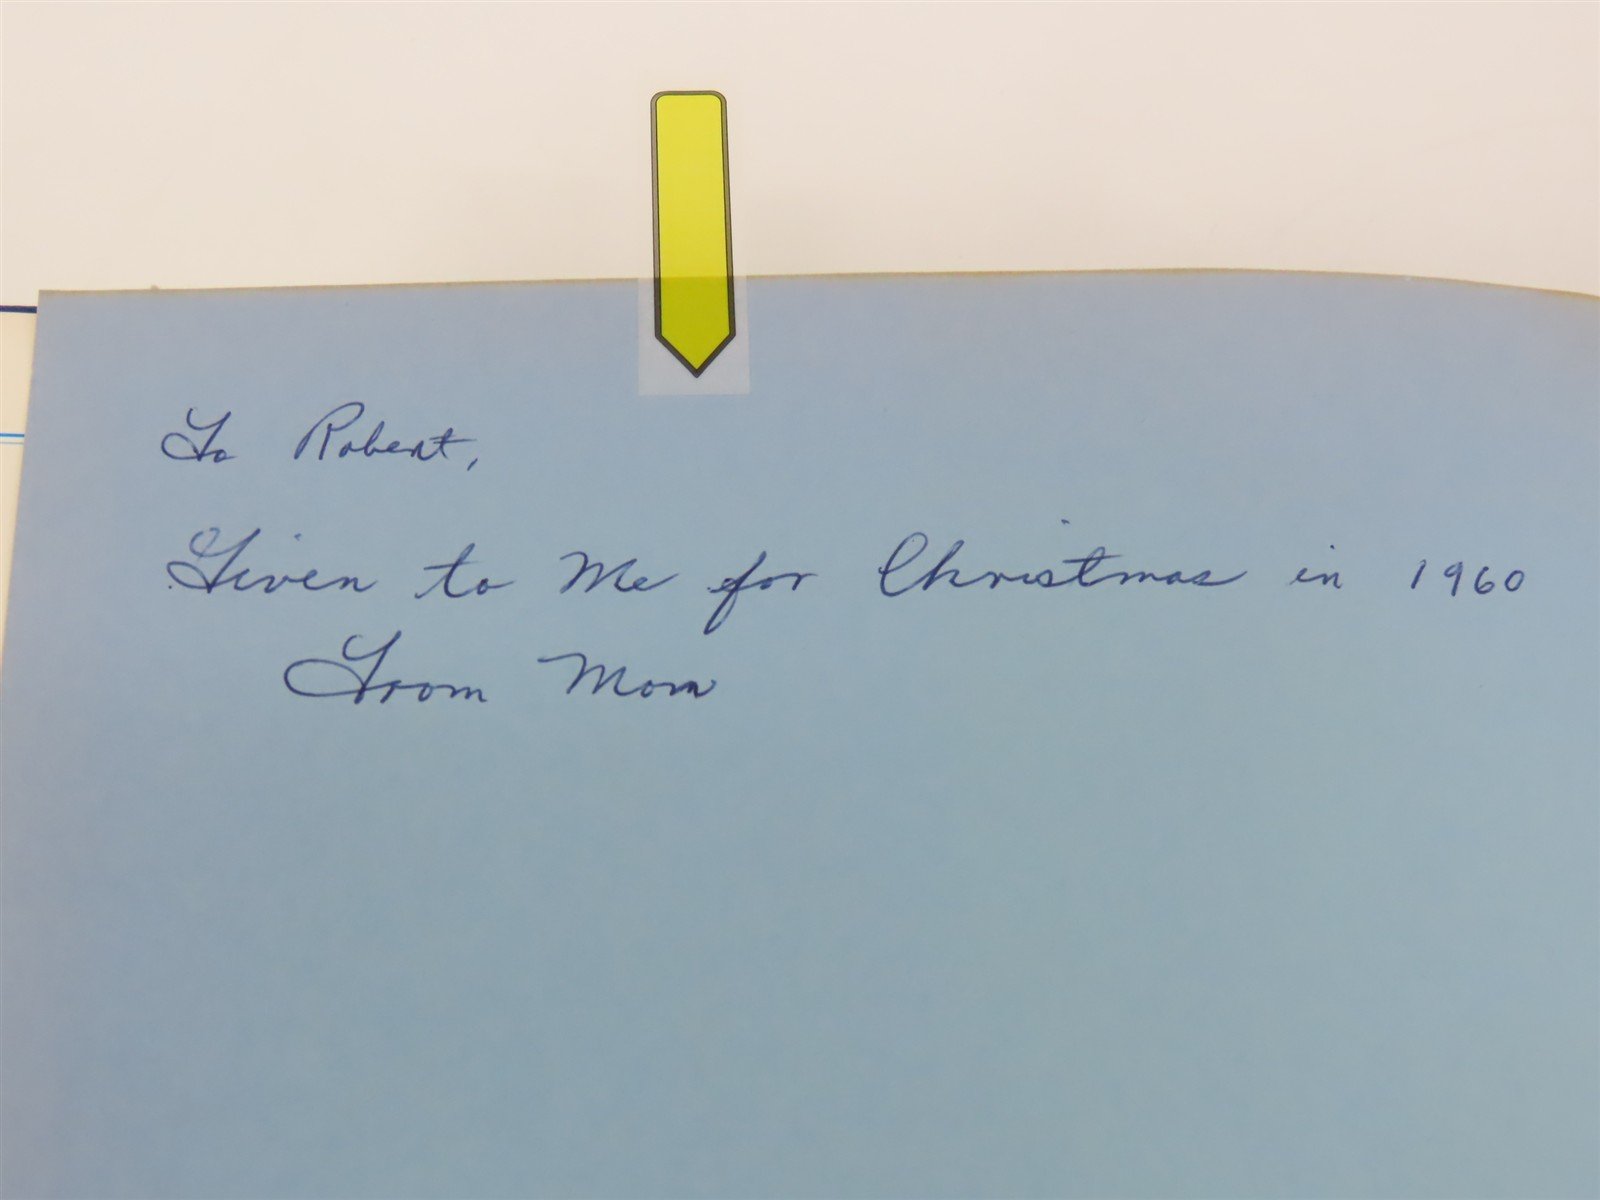 To Robert,
Given to Me for Christmas in 1960
From Mom